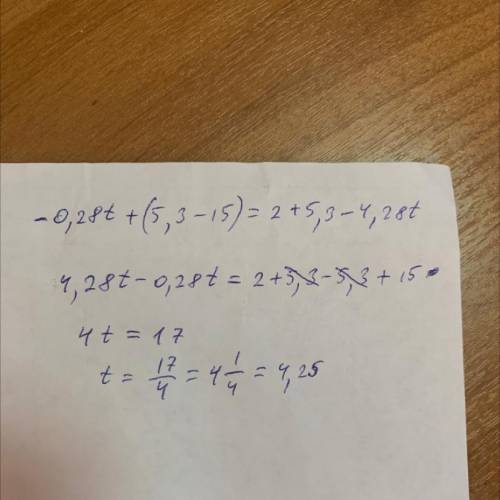 -0,28t + (5,3 - 15) = 2 + 5,3 - 4,28t
4,28t - 0,28t = 2 + 5,3 - 5,3 + 15
4t = 17
t = 17/4 = 4 1/4 = 4,25